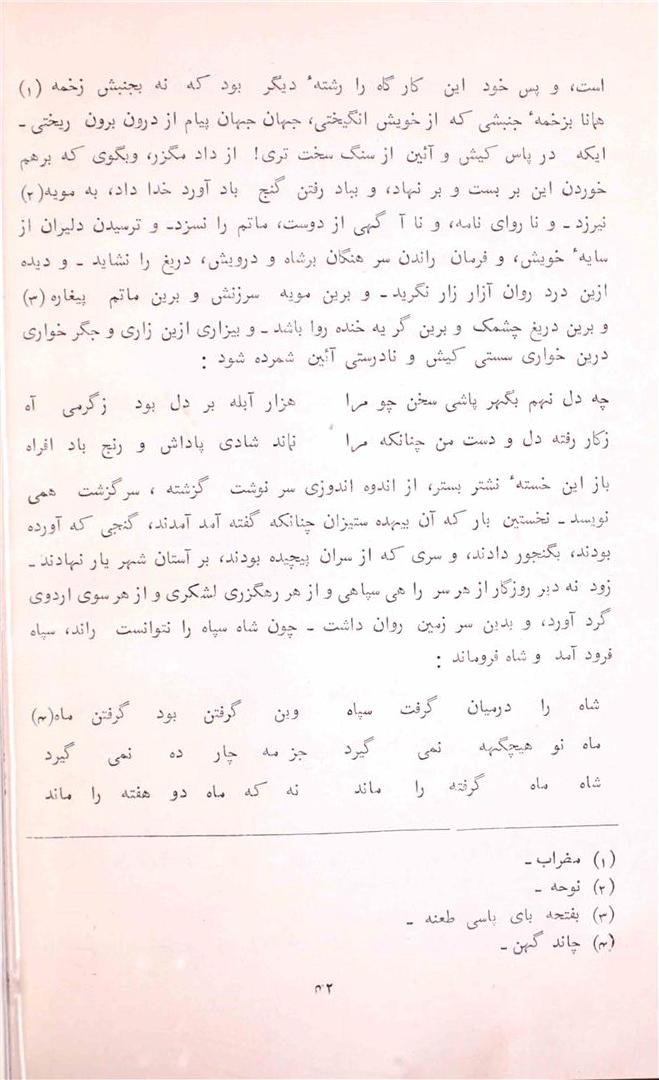 است، و پس خود این کار گاه را رشتهٔ دیگر بود که نه بجنبش زخمه (۱)
همانا بزخمهٔ جنبشی که از خویش انگیختی، جهان جهان پیام از درون برون ریختی ـ
ایکه در پاس کیش و آئین از سنگ سخت تری! از داد مگزر، وبگوی که برهم
خوردن این بر بست و بر نهاد، و بباد رفتن گنج باد آورد خدا داد، به مویه(۲)
نیرزد ـ و نا روای نامه، و نا آ گهی از دوست، ماتم را نسزدـ و ترسیدن دلیران از
سایهٔ خویش، و فرمان راندن سر هنگان برشاه و درویش، دریغ را نشاید ـ و دیده
ازین درد روان آزار زار نگرید ـ و برین مویه سرزنش و برین ماتم پیغاره (۳)
و برین دریغ چشمک و برین گر یه خنده روا باشد ـ و بیزاری ازین زاری و جگر خواری
درین خواری سستی کیش و نادرستی آئین شمرده شود :
چه دل نهم بگهر پاشی سخن چو مرا هزار آبله بر دل بود زگرمی آه
زکار رفته دل و دست من چنانکه مرا نماند شادی پاداش و رنج باد افراه
باز این خستهٔ نشتر بستر، از اندوه اندوزی سر نوشت گزشته ، سرگزشت همی
نویسد ـ نخستین بار که آن بیهده ستیزان چنانکه گفته آمد آمدند، گنجی که آورده
بودند، بگنجور دادند، و سری که از سران پیچیده بودند، بر آستان شهر یار نهادند ـ
زود نه دیر روزگار از هر سر را هی سپاهی و از هر رهگزری لشکری و از هر سوی اردوی
گرد آورد، و بدین سر زمین روان داشت ـ چون شاه سپاه را نتوانست راند، سپاه
فرود آمد و شاه فروماند :
شاه را درمیان گرفت سپاه وین گرفتن بود گرفتن ماه(۴)
ماه نو هیچگهه نمی گیرد جز مه چار ده نمی گیرد
شاه ماه گرفته را ماند نه که ماه دو هفته را ماند
(۱) مضراب ـ
(۲) نوحه ـ
(۳) بفتحه بای پاسی طعنه ـ
(۴) چاند گهن ـ
۴۲